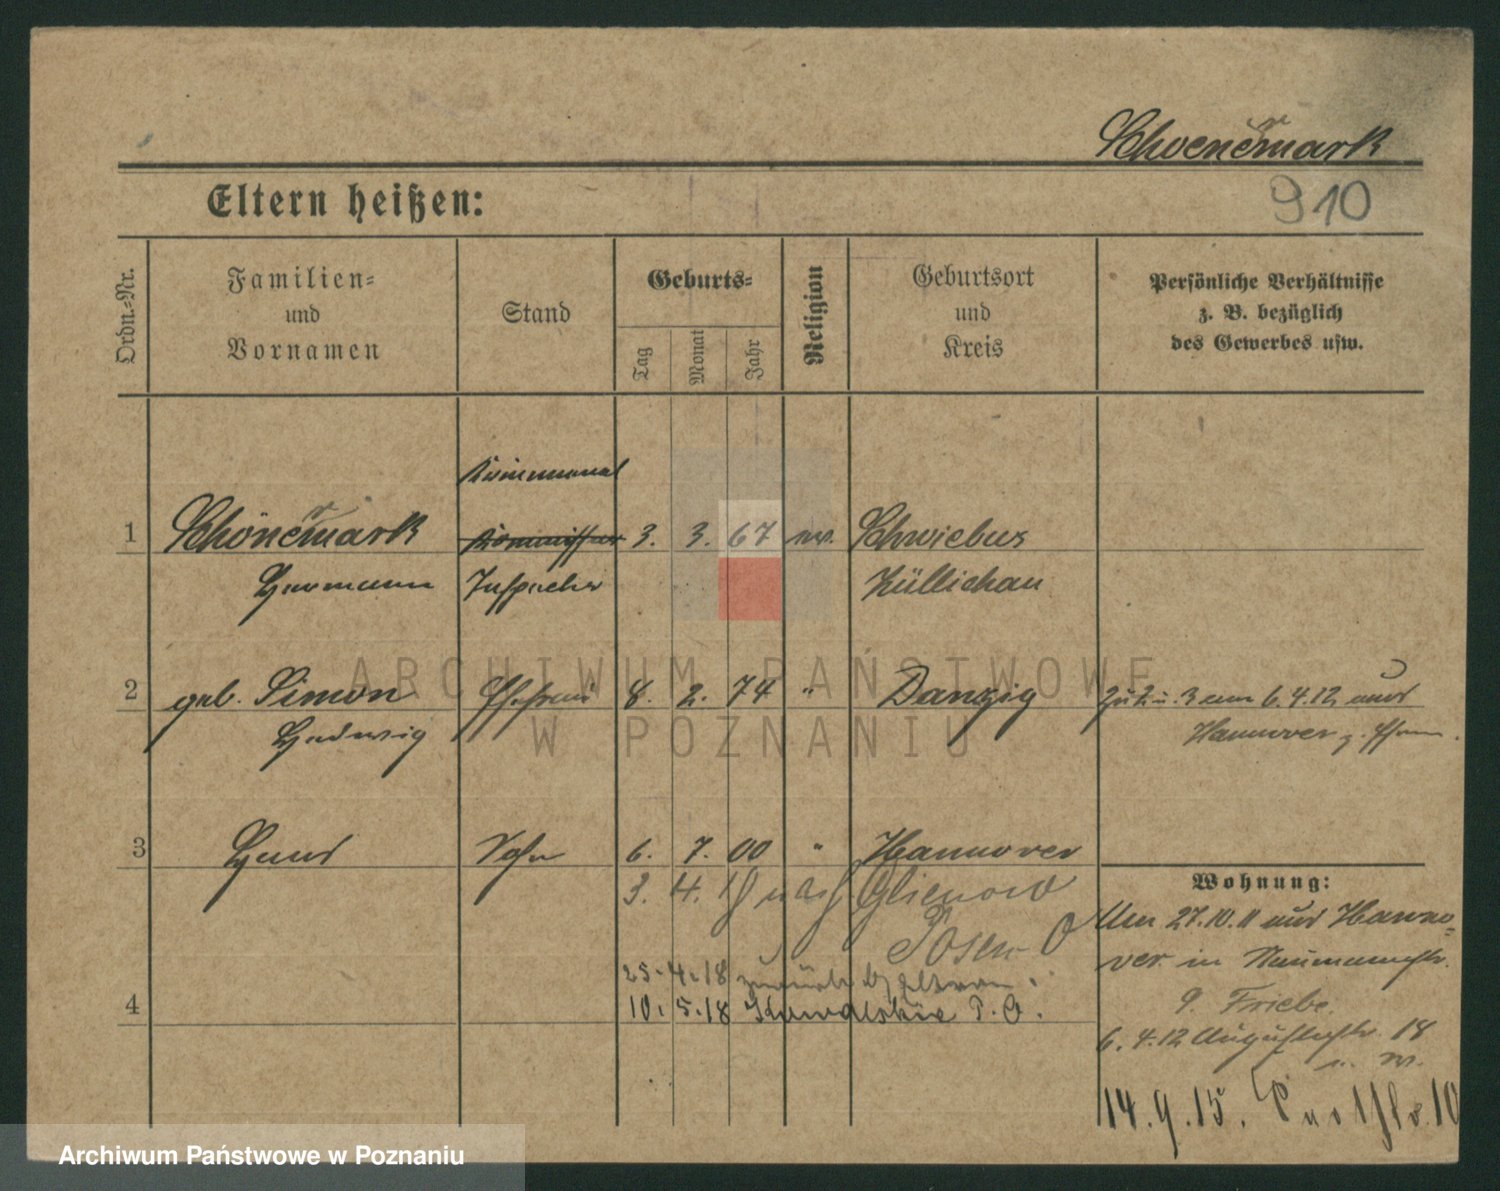 Schoenemark
910
Eltern heißen:
Ordn.-Nr.
Familien-
und
Vornamen
Stand
Geburts-
Tag
Monat
Jahr
Religion
Geburtsort
und
Kreis
Persönliche Verhältnisse
z. B. bezüglich
des Gewerbes usw.
Kommunal
1 Schönemark Kommissar 3. 3. 67 ev. Schwiebus
Hermann Inspector Züllichau
ARCHIWUM PAŃSTWOWE
W POZNANIU
2 geb. Simon Ehefrau 8. 2. 74 " Danzig Zu 2 u. 3 am 6.4.12 aus
Hedwig Hannover z. Ehem.
3 Hans Sohn 6. 7. 00 " Hannover
3. 4. 18 nach Glienowo
Posen O
25.4.18 zurück b/ Eltern.
4
10.5.18 Kowalskie P.O.
Wohnung:
Um 27.10.11 aus Hanno-
ver in Naumannstr.
9. Friebe.
6.4.12 Augustastr. 18
14.9.15. 10
Archiwum Państwowe w Poznaniu